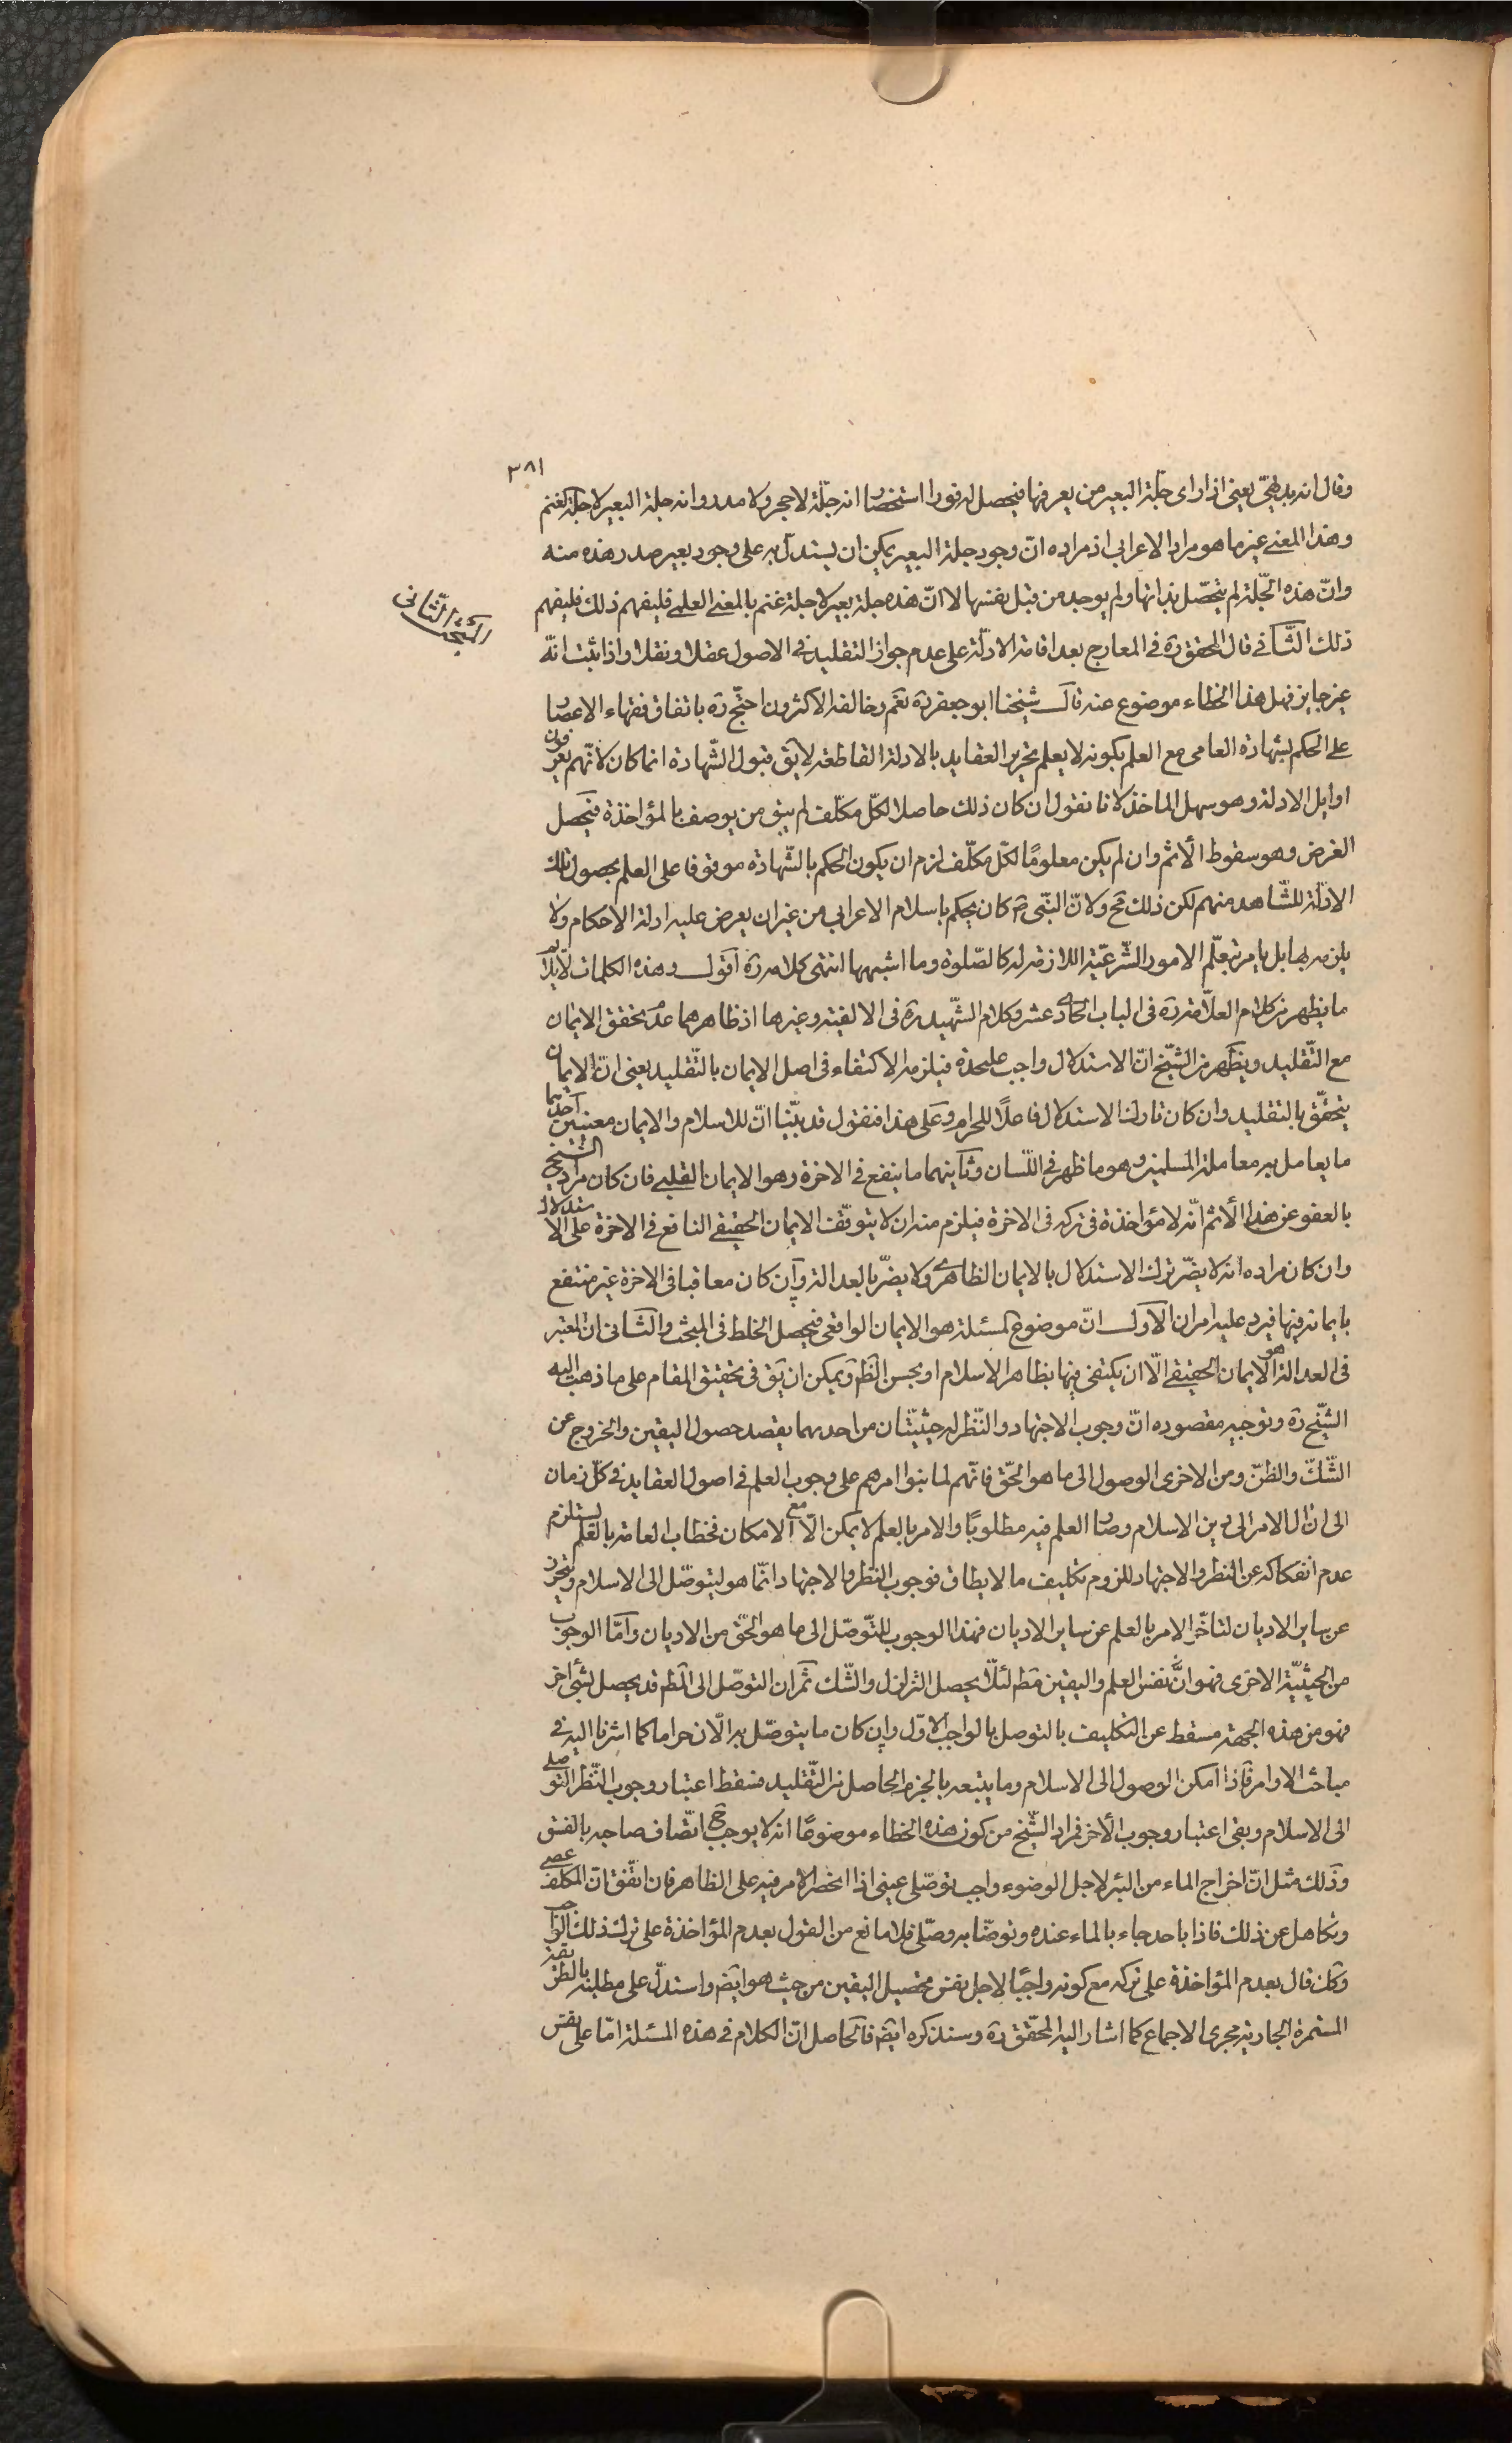 ٣٨١
وقال انه بديهىّ يعنى اذا راى جلّة البعير من يعرفها فيحصل له فورا استخصارا انه جلّة لا حجر ولا مدر وانه جلة البعير لا جلّة الغنم
وهذا المعنى غير ما هو مراد الاعرابى اذ مراده انّ وجود جلة البعير يمكن ان يستدل به على وجود بعير صدر هذه منه
وانّ هذه الجّلة لم يتحصّل بذاتها ولم يوجد من قبل نفسها لا انّ هذه جلة بعير لا جلة غنم بالمعنى العلمى فليفهم ذلك فليفهم
المبحث الثّانى
ذلك الثّانى قال المحقق ره فى المعارج بعد اقامة الادلّة على عدم جواز التقليد فى الاصول عقلا ونقلا واذا ثبت انّه
غير جايز فهل هذا الخطاء موضوع عنه قال شيخنا ابو جعفر ره نعم وخالفه الاكثرون احتجّ ره باتفاق فقهاء الاعصار
على الحكم بشهادة العامى مع العلم بكونه لا يعلم تحرير العقايد بالادلة القاطعة لا يق قبول الشّهادة انما كان لانّهم يعرفون
اوايل الادلة وهو سهل الماخذ لانا نقول ان كان ذلك حاصلا لكلّ مكلّف لم يبق من يوصف بالمؤاخذة فيحصل
الغرض وهو سقوط الاثم وان لم يكن معلومًا لكلّ مكلّف لزم ان يكون الحكم بالشّهادة موقوفا على العلم بحصول تلك
الادلّة للشّاهد منهم لكن ذلك مح ولانّ النبّى ص كان يحكم باسلام الاعرابى من غير ان يعرض عليه ادلة الاحكام ولا
يلزمه بها بل يامره بتعلّم الامور الشّرعيّة اللازمة له كالصّلوة وما اشبهها انتهى كلامه ره اقول وهذه الكلمات لا يلايم
ما يظهر من كلام العلّامة ره فى الباب الحادى عشر وكلام الشّهيد ره فى الالفية وغيرها اذ ظاهرهما عدم تحقق الايمان
مع التّقليد ويظهر من الشّيخ انّ الاستدلال واجب عليحدة فيلزمه الاكتفاء فى اصل الايمان بالتّقليد يعنى انّ الايمان
يتحقّق بالتقليد وان كان تارك الاستدلال فاعلًا للحرام وعلى هذا فنقول قد بيّنا انّ للاسلام والايمان معنيين احدهما
ما يعامل به معاملة المسلمين وهو ما ظهر فى اللّسان وثانيهما ما ينفع فى الاخرة وهو الايمان القلبى فان كان مراد الشيخ
بالعفو عن هذا الاثم انّه لا مؤاخذة فى تركه فى الاخرة فيلزم منه ان لا يتوقّف الايمان الحقيقى النافع فى الاخرة على الاستدلال
وان كان مراده انه لا يضّر ترك الاستدلال بالايمان الظاهرى ولا يضرّ بالعدالة وان كان معاقبا فى الاخرة غير منتفع
بايمانه فيها فيرد عليه امران الاول انّ موضوع المسئلة هو الايمان الواقعى فيحصل الخلط فى المبحث والثّانى ان المعتبر
فى العدالة هو الايمان الحقيقى الّا ان يكتفى فيها بظاهر الاسلام او بحسن الظّن ويمكن ان يق فى تحقيق المقام على ما ذهب اليه
الشّيخ ره وتوجيه مقصوده انّ وجوب الاجتهاد والنّظر له حيثيّتان من احدهما يقصد حصول اليقين والخروج عن
الشّكّ والظنّ ومن الاخرى الوصول الى ما هو الحّق فانّهم لما بنوا امرهم على وجوب العلم فى اصول العقايد فى كلّ زمان
الى ان ال الامر الى دين الاسلام وصار العلم فيه مطلوبًا والامر بالعلم لا يمكن الّا مع الامكان فخطاب العامة بالعلم يستلزم
عدم انفكاكه عن النظر والاجتهاد للزوم تكليف ما لا يطاق فوجوب النّظر والاجتهاد انّما هو ليتوصّل الى الاسلام ويتحرز
عن ساير الاديان لتاخّر الامر بالعلم عن ساير الاديان فهذا الوجوب للتّوصّل الى ما هو الحّق من الاديان وامّا الوجوب
من الحيثيّة الاخرى فهو انّ نفس العلم واليقين مط لئلّا يحصل التزلزل والشّك ثم ان التوصّل الى المط قد يحصل بشئ اخر
فهو من هذه الجهة مسقط عن التكليف بالتوصل بالواجب الاوّل وان كان ما يتوصّل به الان حراما كما اشرنا اليه فى
مباحث الاوامر فاذا امكن الوصول الى الاسلام وما يتبعه بالجزم الحاصل من التّقليد فسقط اعتبار وجوب النّظر التوصلى
الى الاسلام وبقى اعتبار وجوب الاخر فمراد الشّيخ من كون هذه الخطاء موضوعًا انه لا يوجب ح اتّصاف صاحبه بالفسق
وذلك مثل انّ اخراج الماء من البئر لاجل الوضوء واجب توصّلى عينى اذا انحصر الامر فيه على الظاهر فان اتّفق انّ المكلف عصى
وتكاهل عن ذلك فاذا باحد جاء بالماء عنده وتوضّا به وصّلى فلا مانع من القول بعدم المؤاخذة على ترك ذلك الواجب
وكان قال بعدم المؤاخذة على تركه مع كونه واجبًا لاجل نفس تحصيل اليقين من حيث هو ايضا واستدلّ على مطلبه بالطريقة
المستمرة الجارية مجرى الاجماع كما اشار اليه المحّقق ره وسنذكره ايضا فالحاصل انّ الكلام فى هذه المسئلة امّا على نفس